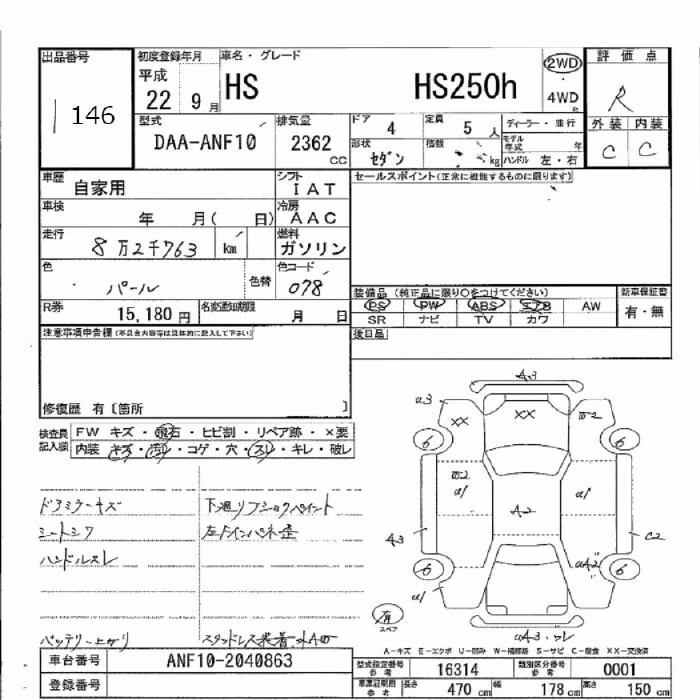 出品番号
146
初度登録年月
平成
22 9月
車名・グレード
HS HS250h
2WD
4WD
評価点
R
外装 内装
C C
型式
DAA-ANF10
排気量
2362
CC
ドア
4
定員
5人
ディーラー・並行
形状
セダン
積載
kg
モデル年式
年
ハンドル 左・右
車歴
自家用
シフト
IAT
セールスポイント(正常に機能するものに限ります)
車検
年 月( 日)
冷房
AAC
走行
8万2千763
km
燃料
ガソリン
色
パール
色替
色コード
078
装備品 (純正品に限り○をつけてください)
新車保証書
PS PW ABS エアB AW
SR ナビ TV カワ
有・無
R券
15,180円
名変通知期限
月 日
後日品
注意事項申告欄(不具合内容等は具体的に記入して下さい)
修復歴 有〔箇所 〕
検査員記入欄
FW キズ・飛石・ヒビ割・リペア跡・×要
内装 キズ・汚レ・コゲ・穴・スレ・キレ・破レ
ドアミラーキズ
シートシワ
ハンドルスレ
バッテリー上がり
左Fインパネ歪
A3
a3
XX
XX
6
6
a1
a1
A2
A3
C2
6
6
a1
有
スペア
A-キズ E-エクボ U-凹み W-補修跡 S-サビ C-腐食 XX-交換済
車台番号
ANF10-2040863
登録番号
型式指定番号
参考
16314
類別区分番号
参考
0001
車庫証明用
参考
長さ
470cm
幅
178cm
高さ
150cm